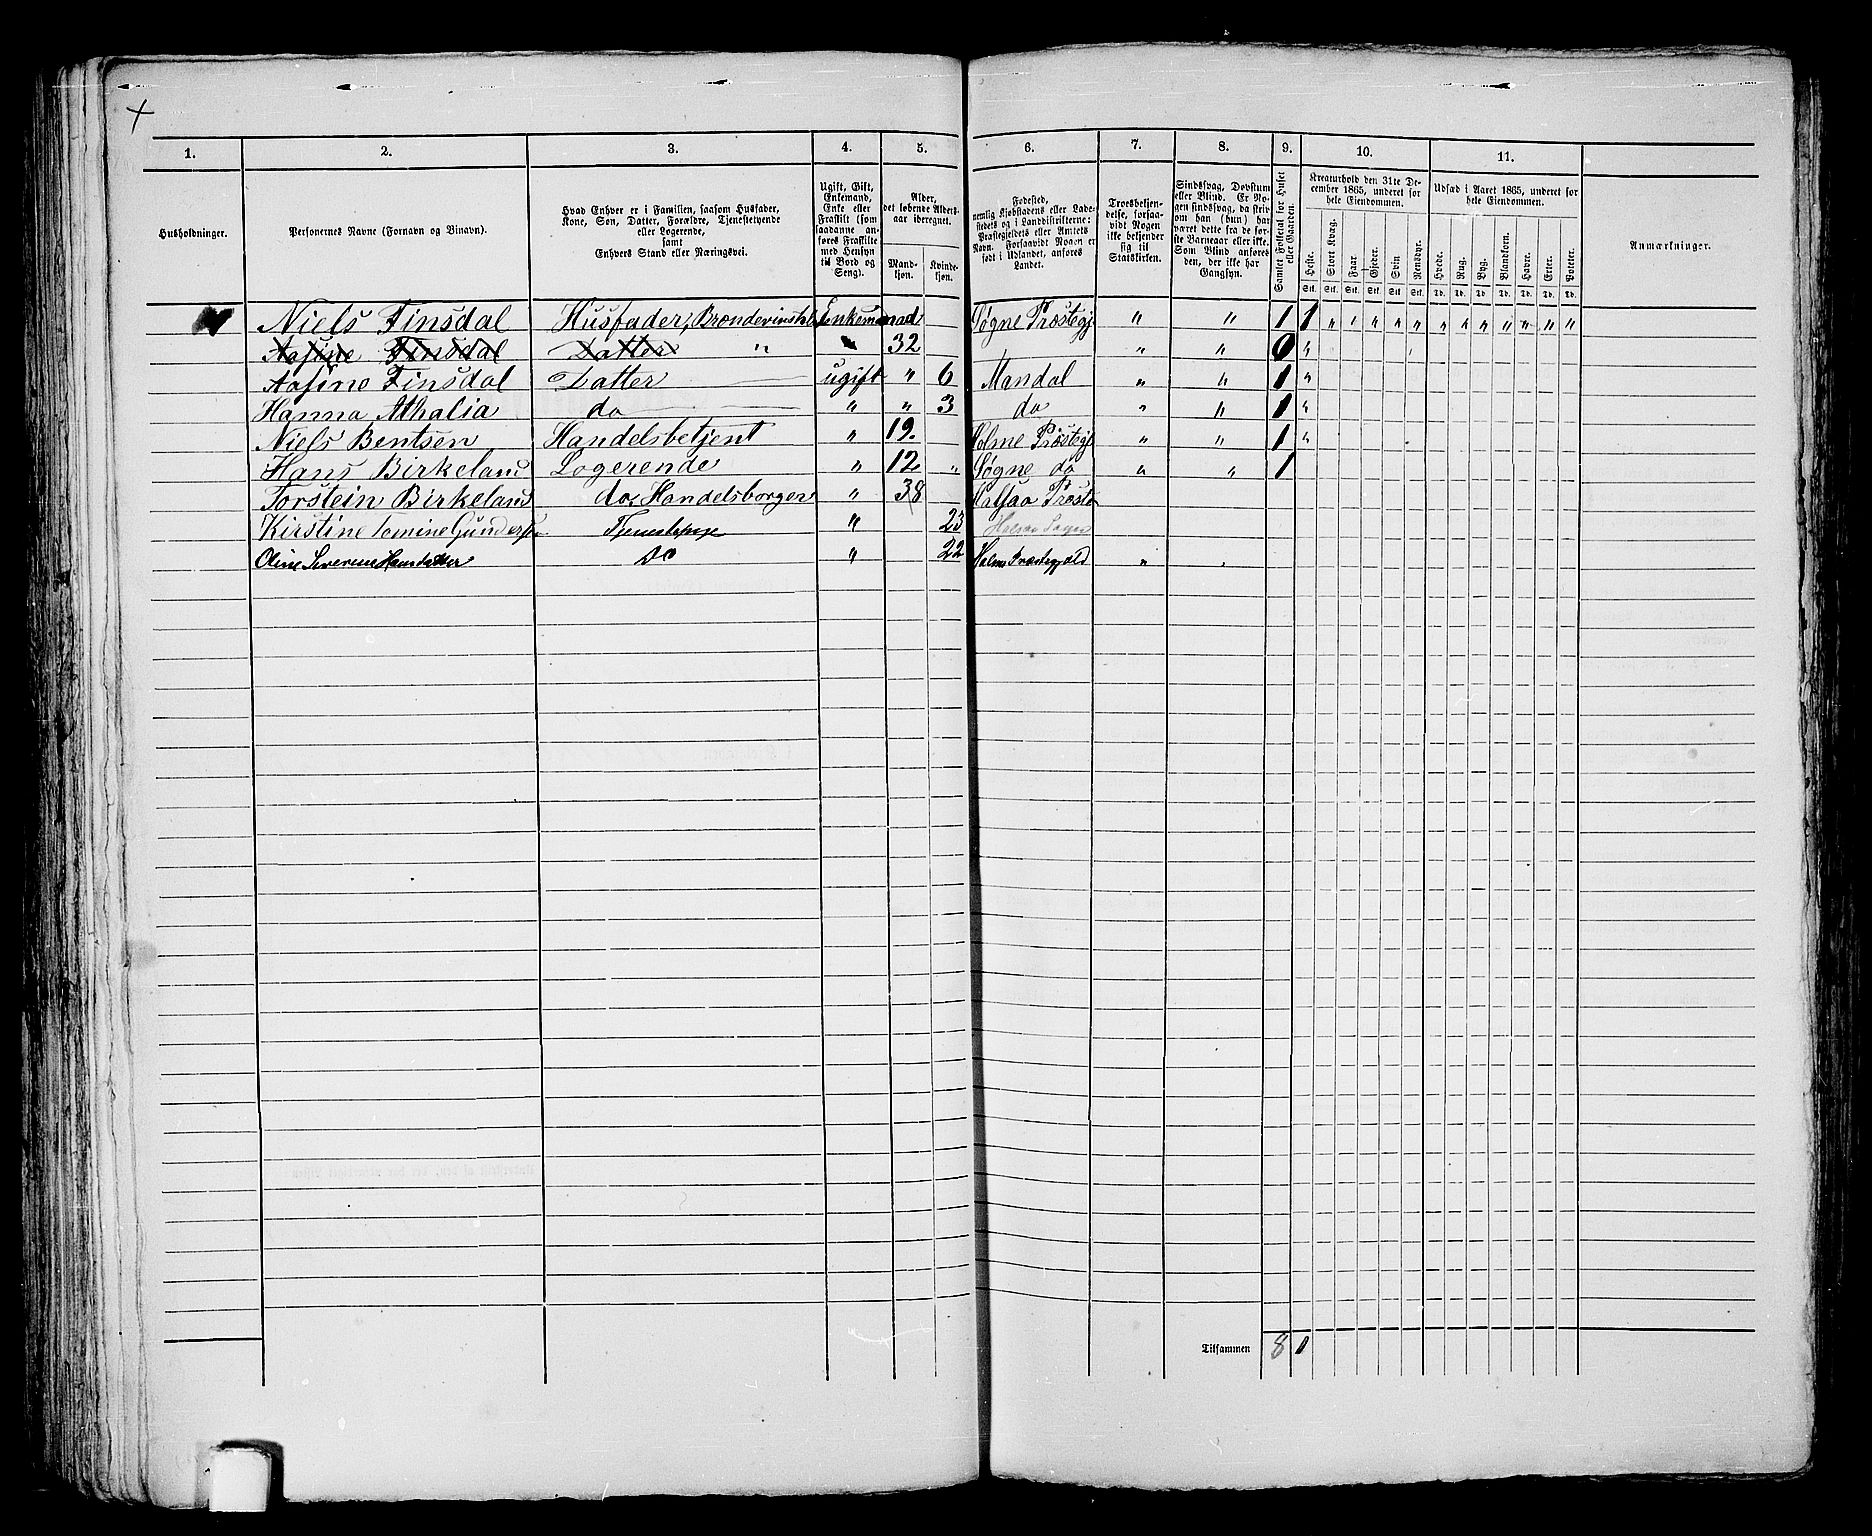 1. 2. 3. 4. 5. 6. 7. 8. 9. 10. 11.
Husholdninger.
Personernes Navne (Fornavn og Binavn).
Hvad Enhver er i Familien, saasom Husfader,
Kone, Søn, Datter, Forældre, Tjenestetyende
eller Logerende,
samt
Enhvers Stand eller Næringsvei.
Ugift, Gift,
Enkemand,
Enke eller
Fraskilt (som
saadanne an-
føres Fraskilte
med Hensyn
til Bord og
Seng).
Alder,
det løbende Alders-
aar iberegnet.
Mand-
kjøn.
Kvinde-
kjøn.
Fødested,
nemlig Kjøbstadens eller Lade-
stedets og i Landdistrikterne:
Præstegjeldets eller Amtets
Navn. Forsaavidt Nogen er
født i Udlandet, anføres
Landet.
Troesbekjen-
delse, forsaa-
vidt Nogen
ikke bekjender
sig til
Statskirken.
Sindssvag, Døvstum
eller Blind. Er No-
gen sindssvag, da skri-
ves om han (hun) har
været dette fra de før-
ste Barneaar eller ikke.
Som Blind anføres
den, der ikke har
Gangsyn.
Samlet Folketal for Huset
eller Gaarden.
Kreaturhold den 31te De-
cember 1865, underet for
hele Eiendommen.
Heste. Stort Kvæg. Faar. Gjeder. Svin. Rensdyr.
Stk. Stk. Stk. Stk. Stk. Stk.
Udsæd i Aaret 1865, underet for
hele Eiendommen.
Hvede. Rug. Byg. Blandkorn. Havre. Erter. Poteter.
Td. Td. Td. Td. Td. Td. Td.
Anmærkninger.
Niels Finsdal Husfader, Enkemand Søgne Præstegj " " 1 1 " " " " " " " " " " " "
Aasine Finsdal Datter " 32 " " 0 "
Aasine Finsdal Datter ugift " 6 Mandal " " 1 "
Hanna Athalia do " " 3 do " " 1 "
Niels Bentsen Handelsbetjent " 19. Holme Præstegj " " 1 "
Hans Birkeland Logerende " 12 " Søgne do " " 1
Torstein Birkeland do, Handelsborger " 38 Halsaa Præste
Kirstine Tomine Gundersen " 23 Halsaa
Oline Severine Do " 22 Holme Præstegjeld "
Tilsammen 8 1